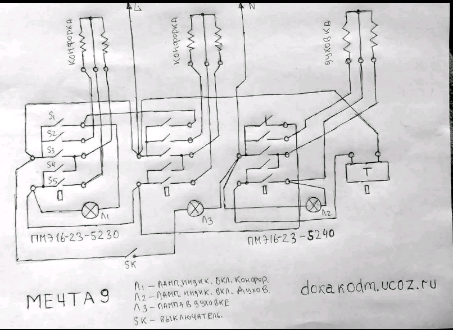 L
N
конфорка
конфорка
духовка
S1
S2
S3
S4
S5
П
П
П
T
П
Л1
Л3
Л2
ПМ716-23-5230
ПМ716-23-5240
SK
МЕЧТА 9
Л1 – ЛАМП. ИНДИК. ВКЛ. КОНФОР.
Л2 – ЛАМП. ИНДИК. ВКЛ. ДУХОВ.
Л3 – ЛАМПА В ДУХОВКЕ
SK – ВЫКЛЮЧАТЕЛЬ.
dokakodm.ucoz.ru